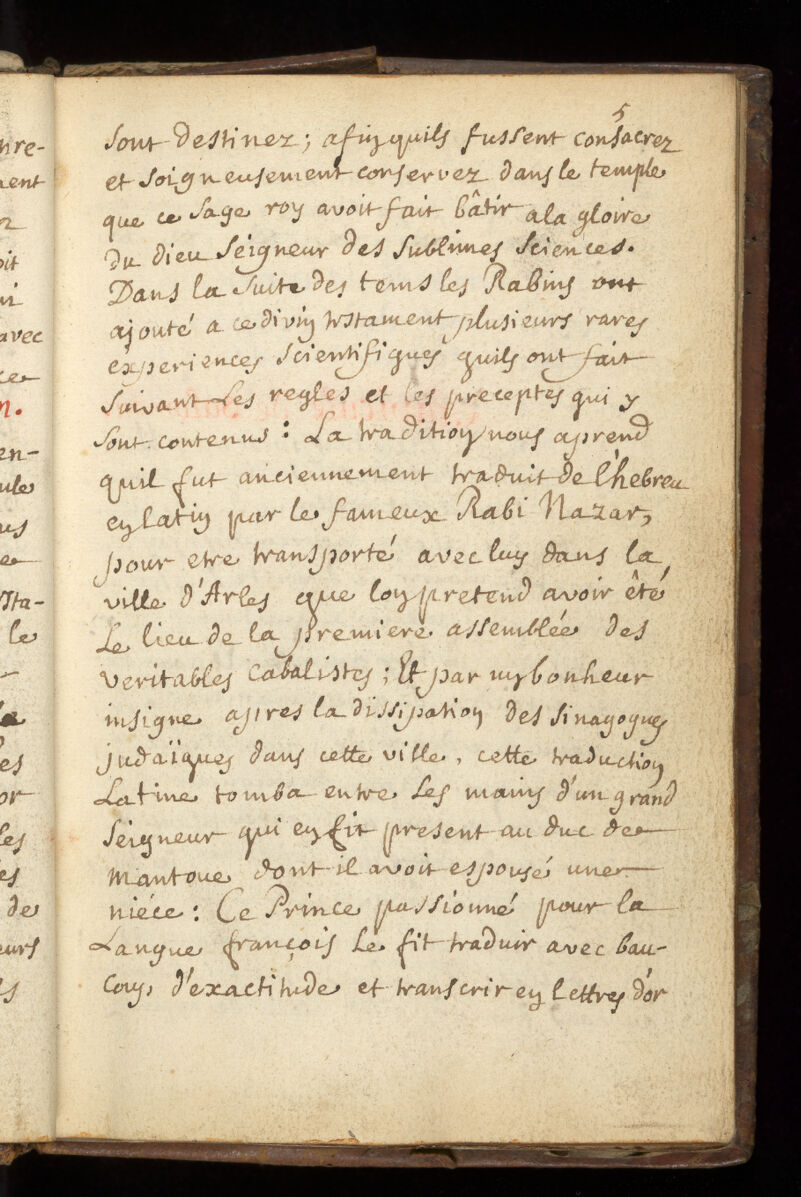 5
sont destinez; afin quils fussent consacrez
et soigneusement conservez dans le temple
que ce sage roy avoit fait bâtir a la gloire
du dieu seigneur des sublimes sciences.
Dans la suite des tems les Rabins ont
ajouté a ce divin testament plusieurs rares
experiences scientifiques quils ont fait
suivant les regles et les preceptes qui y
sont contenus : La tradition nous aprend
quil fut anciennement traduit de l'hebreu
en latin par le fameux Rabi Nazar,
pour etre transporté avec luy dans la
ville d'Arles que lon pretend avoir êté
Le lieu de la premiere assemblée des
veritables cabalistes ; Et par un bonheur
insigne apres la dissipation des sinagogues
judaïques dans cette ville, cette traduction
Latine tomba entre les mains d'un grand
seigneur qui en fit present au duc de
mantoue dont il avoit espousé une
niéce : Ce Prince passionné pour la
Langue françois le fit traduir avec bau-
coup d'exactitude et transcrir en lettres d'or